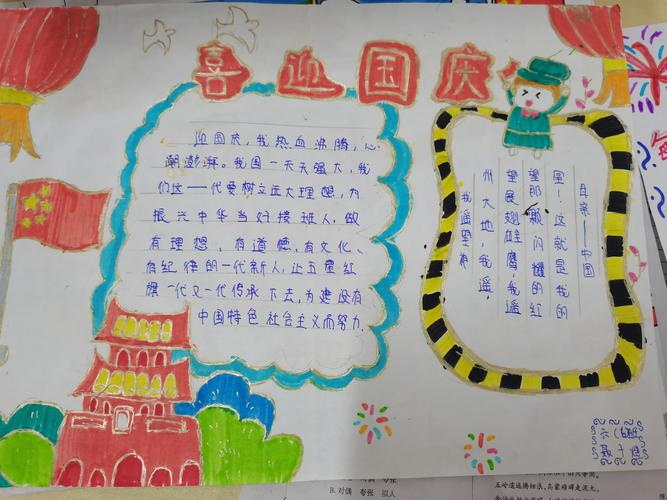 喜迎国庆
迎国庆,我热血沸腾,心
潮澎湃。我国一天天强大,我
们这一代要树立远大理想,为
振兴中华当好接班人,做
有理想,有道德,有文化,
有纪律的一代新人,让五星红
旗一代又一代传承下去,为建设有
中国特色社会主义而努力.
我遥望神
州大地,我遥
望展翅雄鹰,我遥
望那颗闪耀的红
星!这就是我的
母亲——中国
B.对偶 夸张 拟人
五岭逶迤腾细浪,乌蒙磅礴走泥丸。